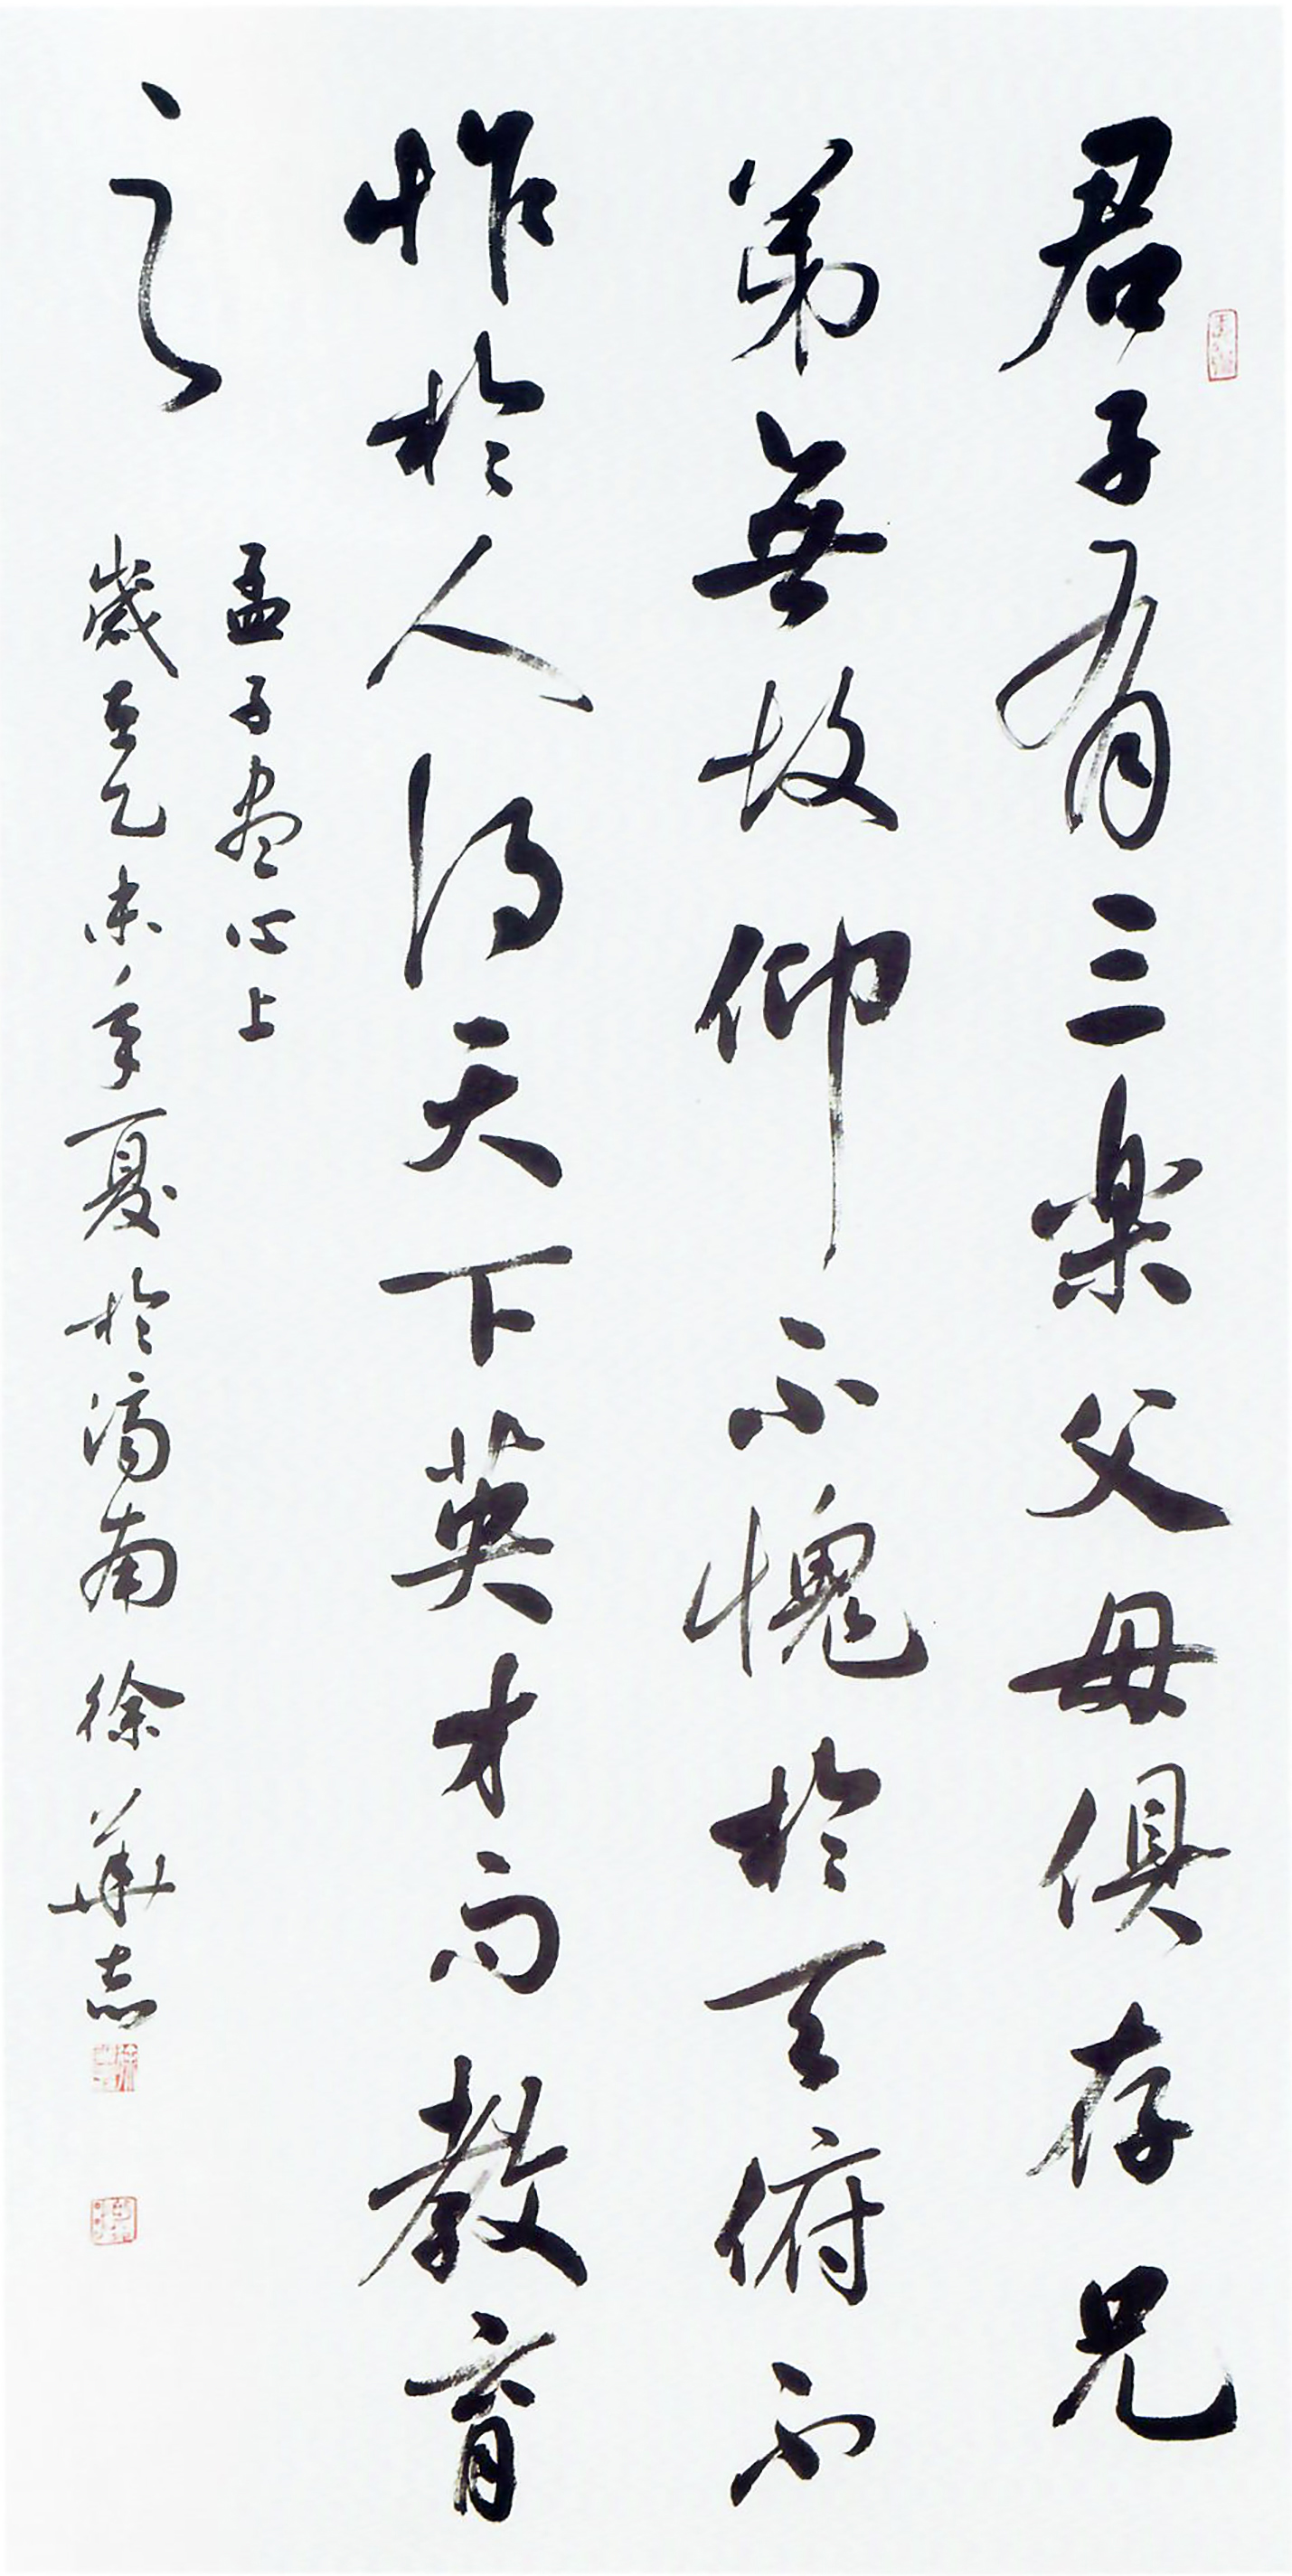 君子有三楽父母俱存兄
弟無故仰不愧於天俯不
怍於人得天下英才而教育
之
孟子尽心上
歲在乙未年夏於濟南 徐華志